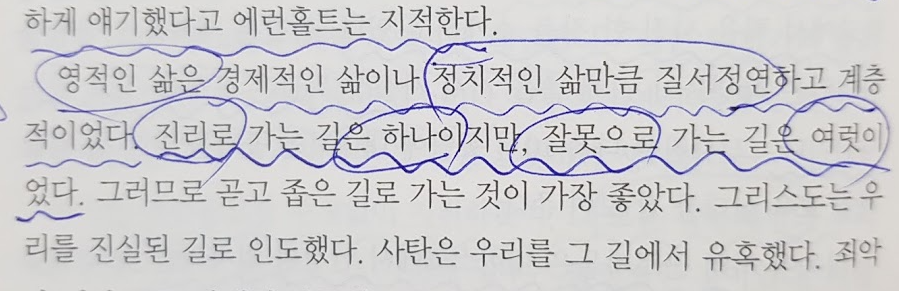 하게 얘기했다고 에런홀트는 지적한다.
영적인 삶은 경제적인 삶이나 정치적인 삶만큼 질서정연하고 계층
적이었다. 진리로 가는 길은 하나이지만, 잘못으로 가는 길은 여럿이
었다. 그러므로 곧고 좁은 길로 가는 것이 가장 좋았다. 그리스도는 우
리를 진실된 길로 인도했다. 사탄은 우리를 그 길에서 유혹했다. 죄악